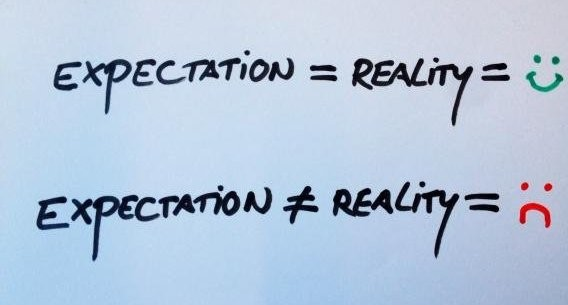 EXPECTATION = REALITY = :)
EXPECTATION ≠ REALITY = :(